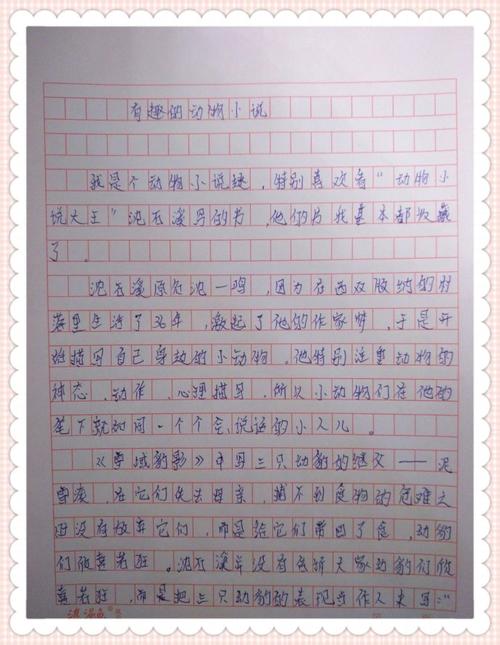 有趣的动物小说
我是个动物小说迷，特别喜欢看“动物小
说大王”沈石溪写的书，他的书我基本都收藏
了。
沈石溪原名沈一鸣，因为在西双版纳的村
落里生活了36年，激起了他的作家梦，于是开
始描写自己身边的小动物。他特别注重动物的
神态、动作、心理描写，所以小动物们在他的
笔下就如同一个个会说话的小人儿。
《雪域豹影》中写三只幼豹的继父——泥
雪滚，在它们失去母亲，捕不到食物的危难
还没有放弃它们，而是给它们带回了食，幼豹
们欣喜若狂。沈石溪并没有告诉大家幼豹们欣
喜若狂，而是把三只幼豹的表现当作人来写：“